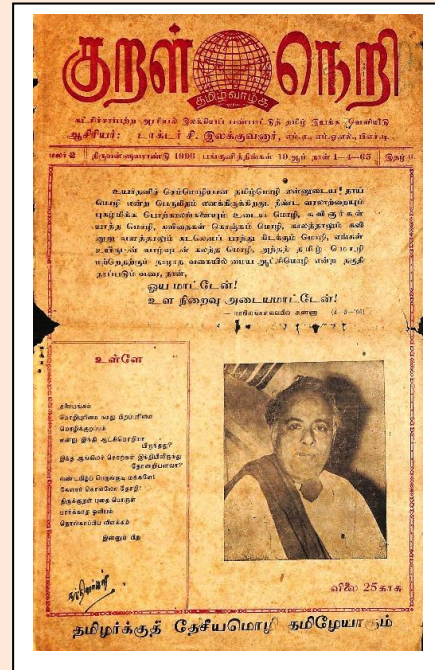 குறள் நெறி
தமிழ் வாழ்க
கட்சிச்சார்பற்ற அரசியல் இலக்கியப் பண்பாட்டுத் தமிழ் இயக்க வெளியீடு
ஆசிரியர்: டாக்டர் சி. இலக்குவனார், எம்.ஏ., எம்.ஓ.எல்., பிஎச்.டி.
மலர் 2 திருவள்ளுவராண்டு 1996 பங்குனித்திங்கள் 19ஆம் நாள் 1-4-65 இதழ்
உயர்தனிச் செம்மொழியான தமிழ்மொழி என்னுடைய தாய்
மொழி என்ற பெருமிதம் எனக்கிருக்கிறது. நீண்ட வரலாற்றையும்
புகழ்மிக்க பொற்காலங்களையும் உடைய மொழி, கவிஞர்கள்
யாத்த மொழி, கவிதைகள் கொஞ்சும் மொழி, காலத்தாலும்
வளத்தாலும் கடலெனப் பரந்து கிடக்கும் மொழி, எங்கள்
உயிருடன் வாழ்வுடன் கலந்த மொழி, அந்தத் தமிழ் மொழி
மற்றெதற்கும் தாழாத வகையில் மைய ஆட்சிமொழி என்ற தகுதி
தரப்படும் வரை, நான்,
ஓய மாட்டேன்!
உள நிறைவு அடையமாட்டேன்!
மாநிலங்களவையில் அண்ணா
உள்ளே
மொழியுரிமை நமது பிறப்புரிமை
மொழிக்குறிப்பு
என்று இந்தி ஆட்சிமொழியா
பிறந்தது?
இந்த ஆங்கிலச் சொற்கள் இந்தியிலிருந்து
தோன்றினவா?
தோழி!
திருக்குறள் புதை பொருள்
பார்க்காத ஓவியம்
தொல்காப்பிய விளக்கம்
இன்னும் பிற
விலை 25 காசு
தமிழர்க்குத் தேசீயமொழி தமிழேயாகும்